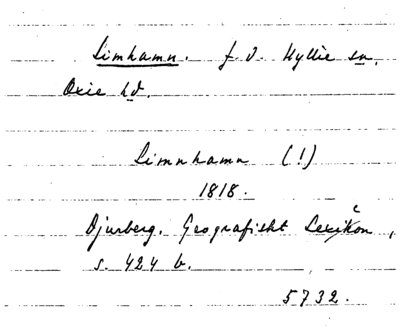 Limhamn. f. d. Hyllie sn,
Oxie hd.
Limnhamn (!)
1818.
Djurberg. Geografiskt Lexikon,
s. 424 b.
5732.